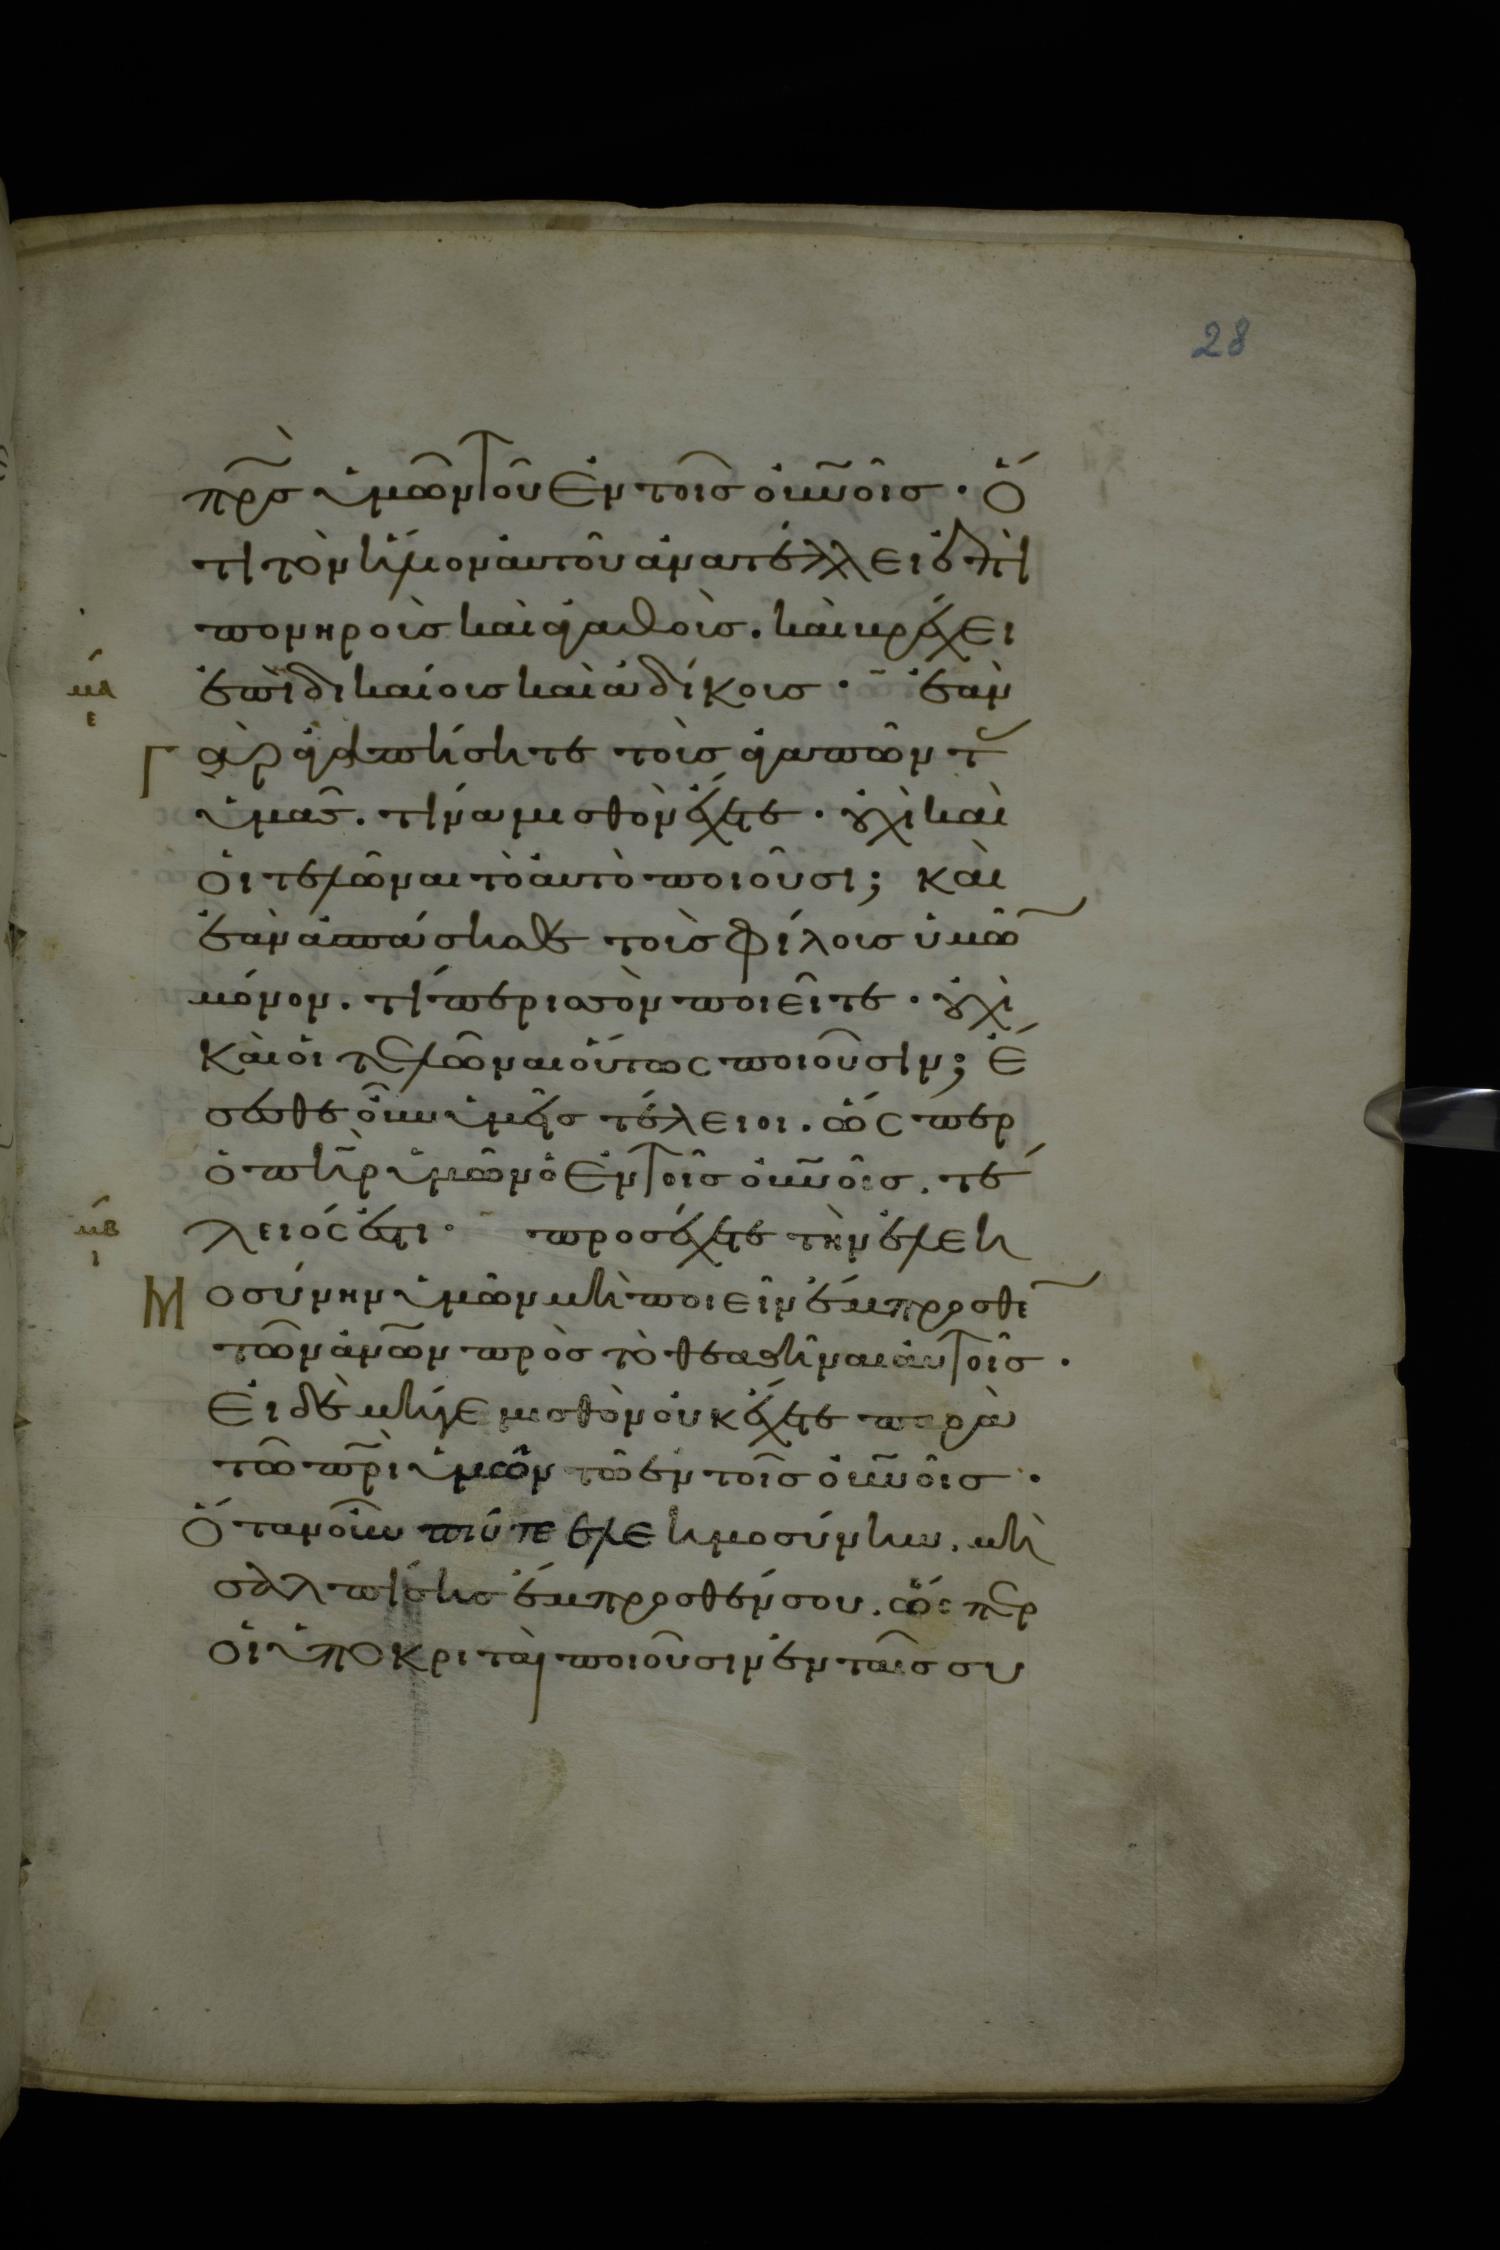 28
πρ̅σ ὑμῶν τοῦ ἐν τοῖς οὐν̅οῖς · ὅ
τι τὸν ἥλιον αὐτοῦ ἀνατέλλει ἐπὶ
πονηροὺς καὶ ἀγαθοὺς . καὶ βρέχει
ἐπὶ δικαίους καὶ ἀδίκους · ἐὰν
μα
ε
Γ ὰρ ἀγαπήσητε τοὺς ἀγαπῶντ
ὑμᾶς . τίνα μισθὸν ἔχετε · οὐχὶ καὶ
οἱ τελῶναι τὸ αὐτὸ ποιοῦσι ; καὶ
ἐὰν ἀσπάσησθε τοὺς φίλους ὑμῶ
μόνον . τί περισσὸν ποιεῖτε · οὐχὶ
καὶ οἱ τελῶναι οὕτως ποιοῦσιν ; ἔ
σεσθε οὖν ὑμεῖς τέλειοι . ὥσπερ
ὁ πη̅ρ ὑμῶν ὁ ἐν τοῖς οὐν̅οῖς . τέ
λειός ἐστι · προσέχετε τὴν ἐλεη
μβ
ι
Μ οσύνην ὑμῶν μὴ ποιεῖν ἔμπροσθε
τῶν ἀν̅ων πρὸς τὸ θεαθῆναι αὐτοῖς ·
εἰ δὲ μήγε μισθὸν οὐκ ἔχετε παρὰ
τῶ πρ̅ὶ ὑμῶν τῶ ἐν τοῖς οὐν̅οῖς ·
Ὅταν οὖν ποιῆς ἐλεημοσύνην . μὴ
σαλπίσης ἔμπροσθέν σου . ὥσπερ
οἱ ὑποκριταὶ ποιοῦσιν ἐν ταῖς συ